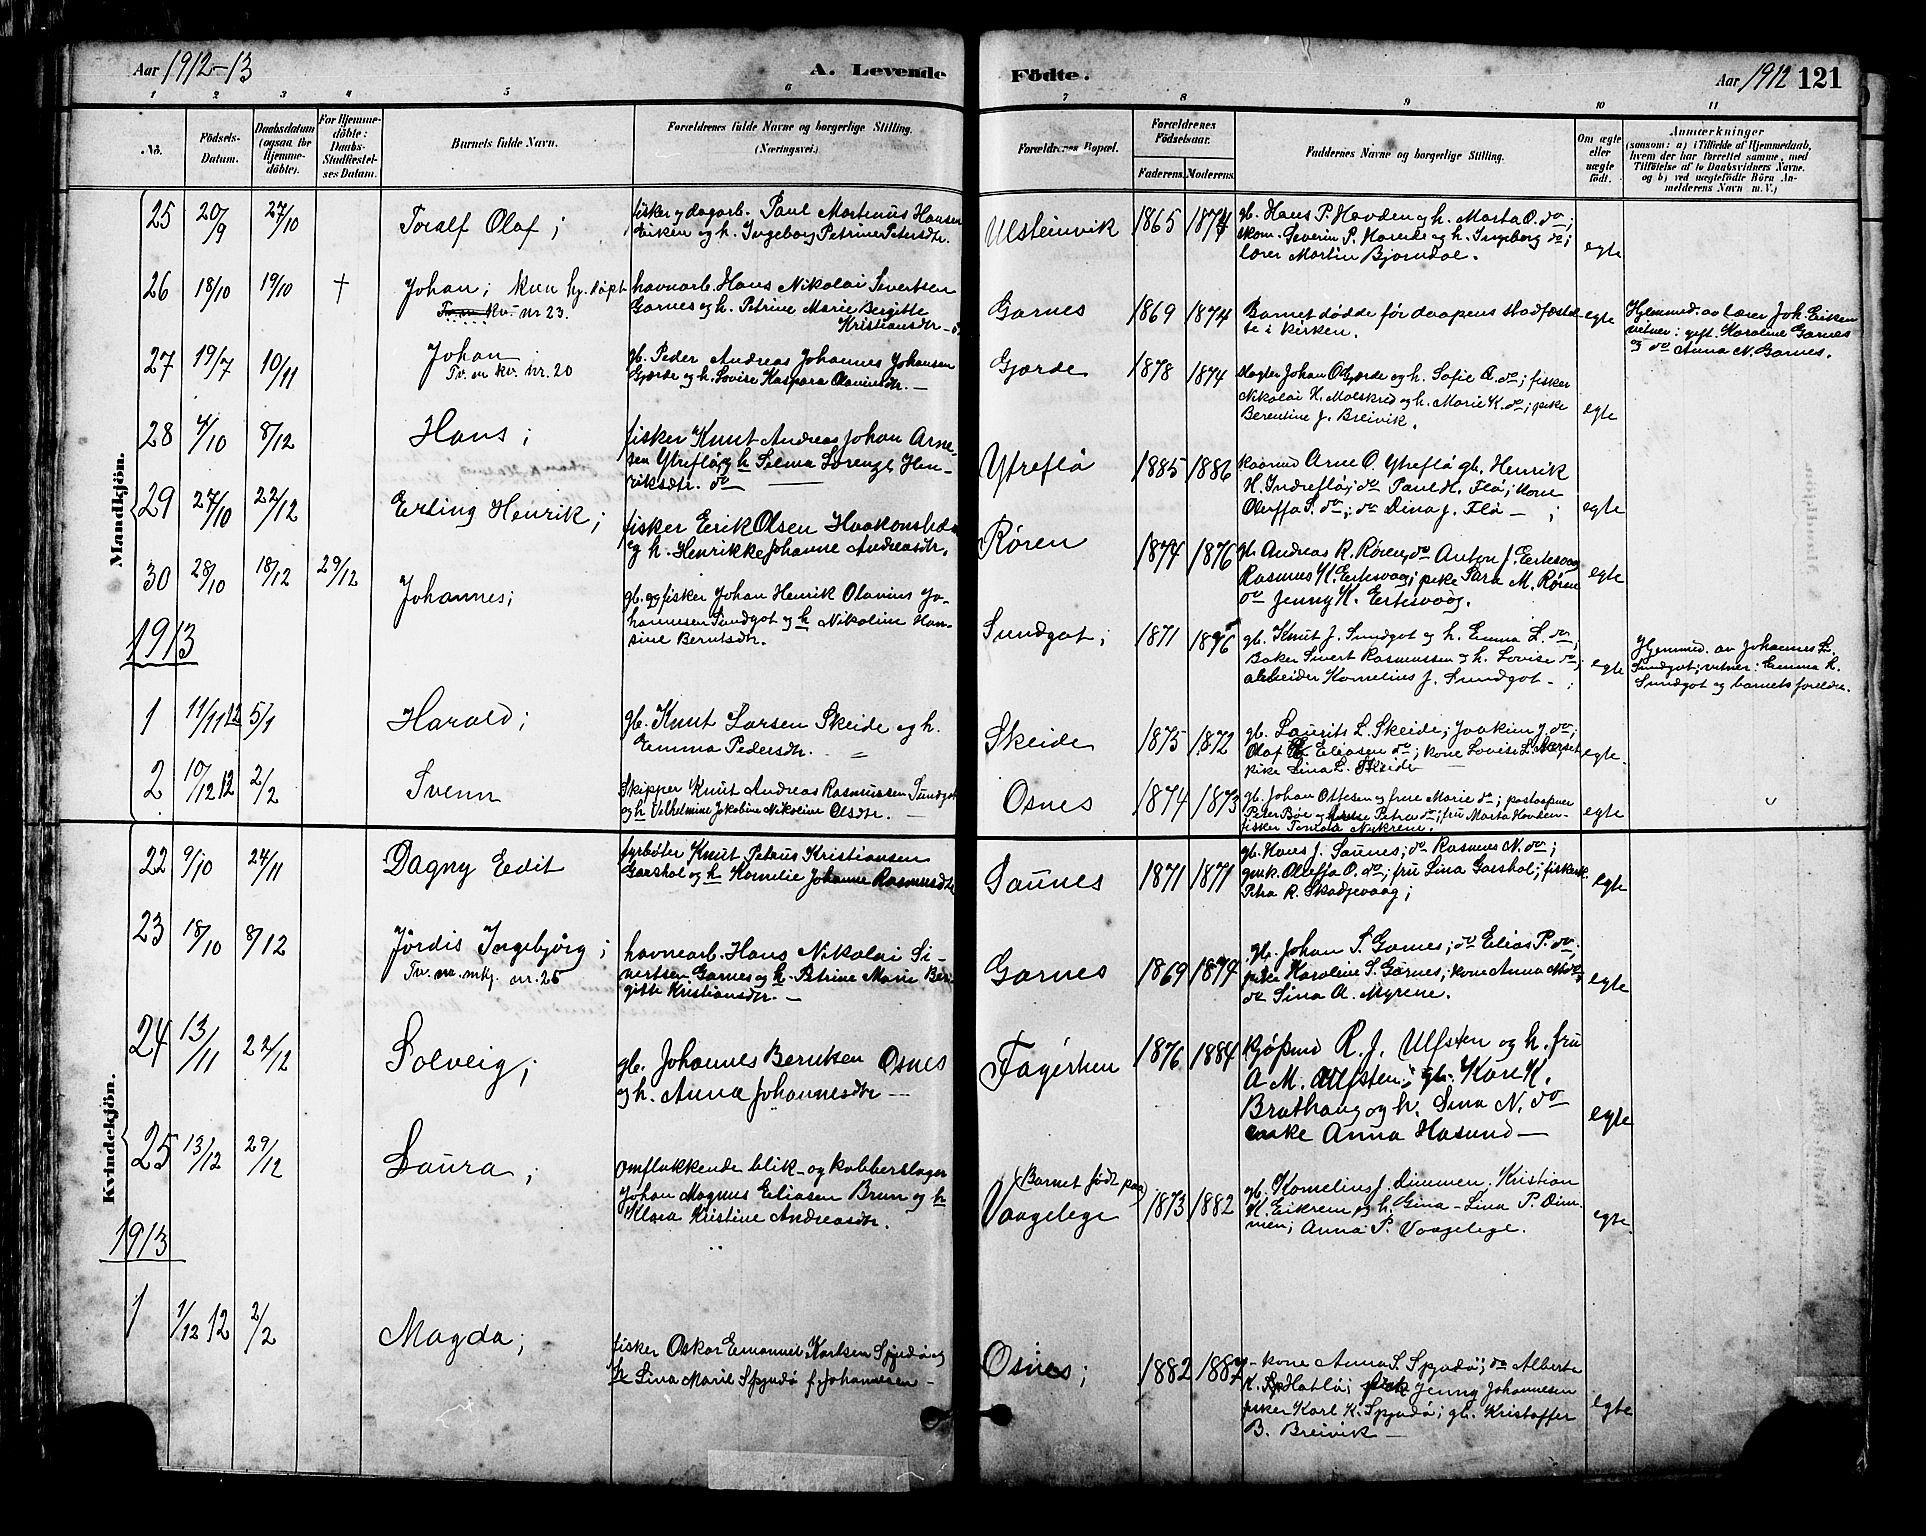 Aar 1912-13
A. Levende
Födte.
Aar 1912 121
1 2 3 4 5 6 7 8 9 10 11
No.
Födsels-
Datum.
Daabsdatum
(ogsaa for
Hjemme-
döbte).
For Hjemme-
döbte:
Daabs-
Stadfæstel-
ses Datum.
Barnets fulde Navn.
Forældrenes fulde Navne og borgerlige Stilling.
(Næringsvei.)
Forældrenes Bopæl.
Forældrenes
Födselsaar.
Faderens. Moderens.
Faddernes Navne og borgerlige Stilling.
Om ægte
eller
uægte
födt.
Anmærkninger
(saasom: a) i Tilfælde af Hjemmedaab,
hvem der har forrettet samme, med
Tilföielse af to Daabsvidners Navne,
og b) ved uægtefödte Börn An-
melderens Navn m. V.)
Mandkjön.
25 20/9 27/10 Toralf Olaf;
fisker og dagarb. Paul Martinus Hansen
Eiken og h. Ingeborg Petrine Petersdtr.
Ulsteinvik 1865 1874
gb. Hans P. Hovden og h. Marta O. do;
skom. Severin P. Harede og h. Ingeborg do;
lærer Martin Bjørndal.
egte
26 18/10 19/10 † Johan; kun hj. døpt
Tv. m. kv. nr 23.
havnarb. Hans Nikolai Sivertsen
Garnes og h. Petrine Marie Bergitte
Kristiansdtr
Garnes 1869 1874
Barnet dødde før daapens stadfæstel-
se i kirken.
egte
Hjemmed. av lærer Joh. Eiken
vitner: gift Karoline Garnes
og do Anna N. Garnes.
27 19/7 10/11 Johan
Tv. m kv. nr. 20
gb. Peder Andreas Johannes Johansen
Gjerde og h. Lovise Kaspara Olavusdtr. —
Gjerde 1878 1874
slagter Johan O. Gjerde og h. Sofie A. do; fisker
Nikolai H. Molskred og h. Marie K. do; pike
Berentine J. Breivik.
egte
28 4/10 8/12 Hans;
fisker Knut Andreas Johan Arne-
sen Ytreflø, og h. Selma Lorense Hen-
riksdtr. do
Ytreflø 1885 1886
kaarmd Arne O. Ytreflø gb. Henrik
H. Indreflø; do Paul H. Flø; kone
Oluffa S. do; do Dina J. Flø — ;
egte
29 27/10 22/12 Erling Henrik;
fisker Erik Olsen Haakonsholm
og h. Henrikke Johanne Andreasdtr.
Røren 1874 1876
gb. Andreas R. Røren, do Anton J. Eertesvaag
Rasmus K. Eertesvaag; pike Sara M. Røren
do Jenny K. Ertesvaag.
egte
30 28/10 18/12 29/12 Johannes;
gb. og fisker Johan Henrik Olavius Jo-
hannesen Sundgot og h Nikoline Han-
sine Berntsdtr.
Sundgot; 1871 1876
gb. Knut J. Sundgot og h. Emma L. do;
Baker Sivert Rasmussen og h. Lovise do;
arbeider Kornelius J. Sundgot —
egte
Hjemmed. av Johannes L.
Sundgot; vitner: Emma L.
Sundgot og barnets foreldre.
1913
1 11/11 12 5/1 Harald;
gb. Knut Larsen Skeide og h.
Emma Pedersdtr. —
Skeide 1875 1872
gb. Laurits L. Skeide; Joakim J. do;
Olaf Eliasen do; kone Lovise L.
pike Lina L. Skeide
egte
2 10/12 12 2/2 Svenn
Skipper Knut Andreas Rasmussen Sundgot
og h Vilhelmine Jakobine Nikoline Olsdtr. —
Osnes 1874 1873
gb. Johan Ottesen og frue Marie do; postaapner
Peter Bøe og frue Petra do; fru Marta Hovden-
fisker Tomas Nykrene.
egte
Kvindekjön.
22 9/10 24/11 Dagny Edit
fyrbøter Knut Petrus Kristiansen
Garshol og h Kornelie Johanne Rasmusdtr
Saunes 1871 1871
gb. Hans J. Saunes; do Rasmus N. do;
gmk. Olleffa O. do; fru Lina Garshol; fiskersk.
Petra R. Skadjevaag;
egte
23 18/10 8/12 Jørdis Ingebjørg;
Tv. m. mkj. nr. 25
havnearb. Hans Nikolai Si-
vertsen Garnes og h. Petrine Marie Ber-
gitte Kristiansdtr. —
Garnes 1869 1874
gb. Johan S. Garnes; do Elias P. do;
pike Karoline S. Garnes; kone Anna N. do;
do Lina A. Myrene.
egte
24 13/11 22/12 Solveig;
gb. Johannes Berntsen Osnes
og h. Anna Johannesdtr —
Fagerheim 1876 1884
kjøpmd R. J. Ulfsten og h. fru
A M. Ulfsten; gb. Kare K.
Brathaug og h. Lina N. do
enke Anna Hasund —
egte
25 13/12 29/12 Laura;
omflakkende blik- og kobberslager
Johan Magnus Eliasen Brun og h
Klara Kristine Andreasdtr.
(Barnet født paa)
Vaagelege 1873 1882
gb. Kornelius J. Dimmen. Kristian
K. Eikrem og h. Gina - Lina P. Dim-
men; Anna P. Vaagelege.
egte.
1913
1 1/12 12 2/2 Magda;
fisker Oskar Emanuel Karlsen Spjudø og
h Lina Marie Spjudø f. Johannesen —
Osnes; 1882 1887
kone Anna S. Spjudø; do Alberta
K. Hatlø; Jenny Johannesen
fisker Karl K. Spjudø; gb. Kristoffer
B. Breivik —
egte